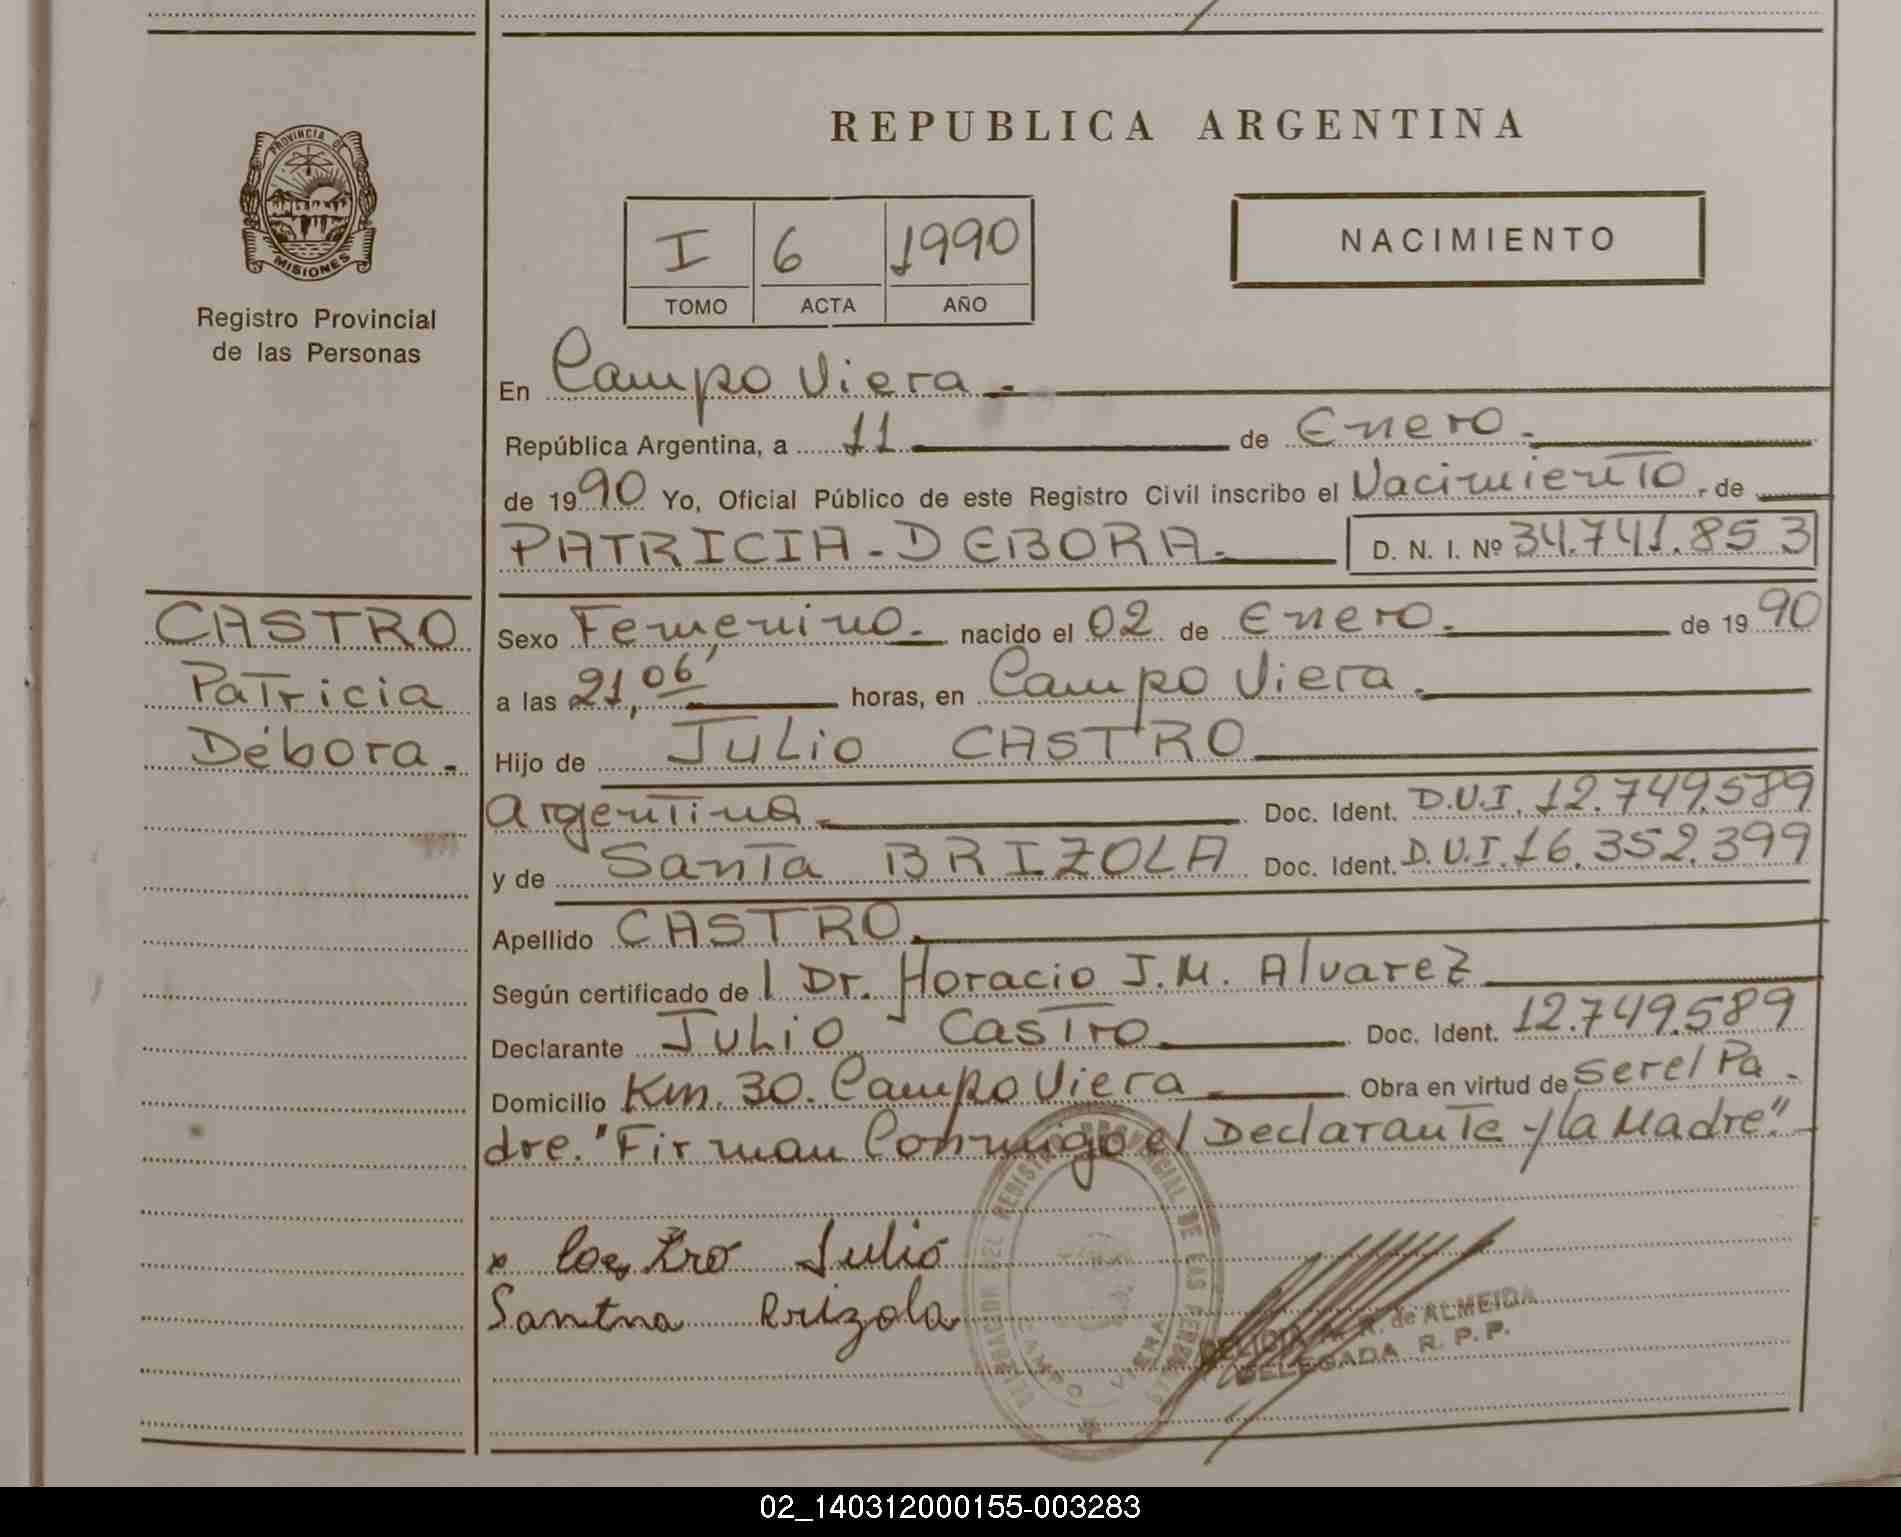 REPUBLICA ARGENTINA
PROVINCIA DE
MISIONES
Registro Provincial
de las Personas
I 6 1990
TOMO ACTA AÑO
NACIMIENTO
En Campo Viera.-
República Argentina, a 11 de Enero.
de 1990 Yo, Oficial Público de este Registro Civil inscribo el Nacimiento. de
PATRICIA-DEBORA. D. N. I. Nº 34.741.853
CASTRO
Patricia
Débora.
Sexo Femenino. nacido el 02 de Enero. de 1990
a las 21,06' horas, en Campo Viera.
Hijo de Julio CASTRO
Argentina. Doc. Ident. D.N.I. 12.749.589
y de Santa BRIZOLA Doc. Ident. D.N.I. 16.352.399
Apellido CASTRO.
Según certificado del Dr. Horacio J.M. Alvarez
Declarante Julio Castro Doc. Ident. 12.749.589
Domicilio Km. 30. Campo Viera Obra en virtud de ser el Pa-
dre. "Firman Conmigo el Declarante y la Madre".
x Castro Julio
Santna Brizola
REGISTRO PROVINCIAL DE LAS PERSONAS
CAMPO VIERA
DELICIA A. R. de ALMEIDA
DELEGADA R. P. P.
02_140312000155-003283